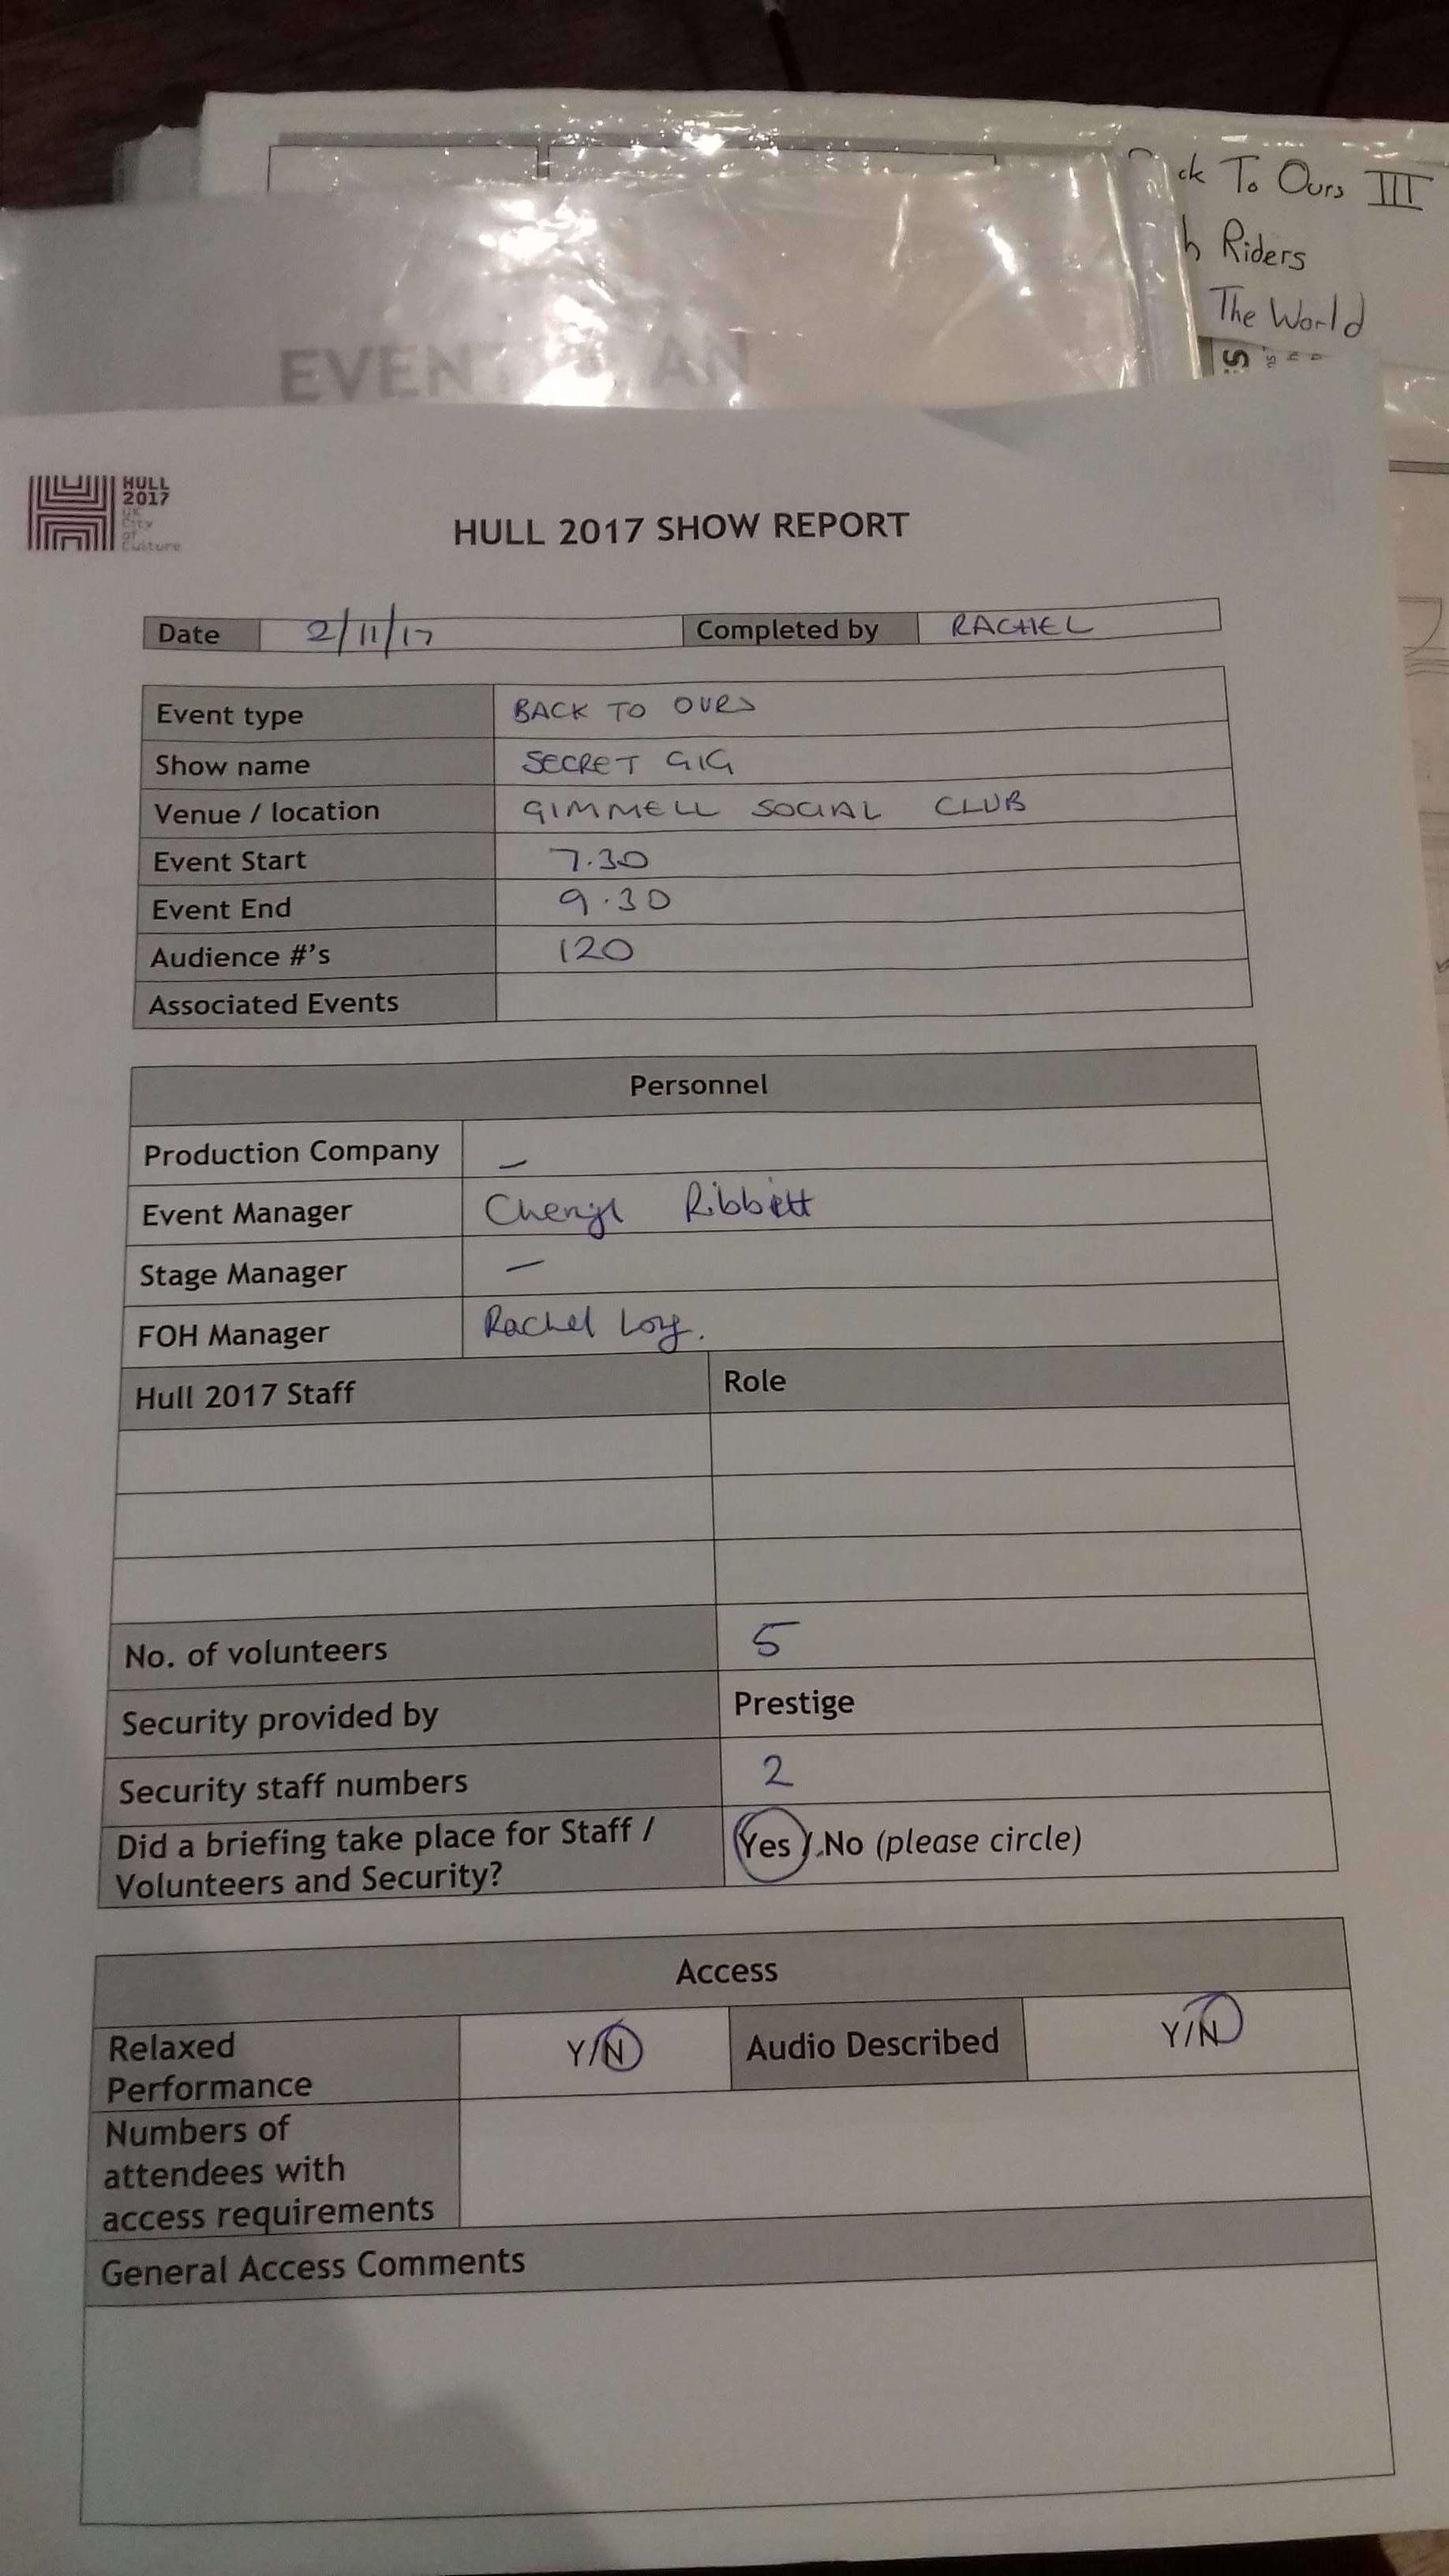 ck To Ours III
h Riders
The World
EVENT PLAN
HULL
2017
UK
City
of
Culture
HULL 2017 SHOW REPORT
Date 2/11/17 Completed by RACHEL
Event type BACK TO OURS
Show name SECRET GIG
Venue / location GIMMELL SOCIAL CLUB
Event Start 7.30
Event End 9.30
Audience #'s 120
Associated Events
Personnel
Production Company —
Event Manager Cheryl Ribbett
Stage Manager —
FOH Manager Rachel
Hull 2017 Staff Role
No. of volunteers 5
Security provided by Prestige
Security staff numbers 2
Did a briefing take place for Staff / Yes / No (please circle)
Volunteers and Security?
Access
Relaxed Y/N Audio Described Y/N
Performance
Numbers of
attendees with
access requirements
General Access Comments